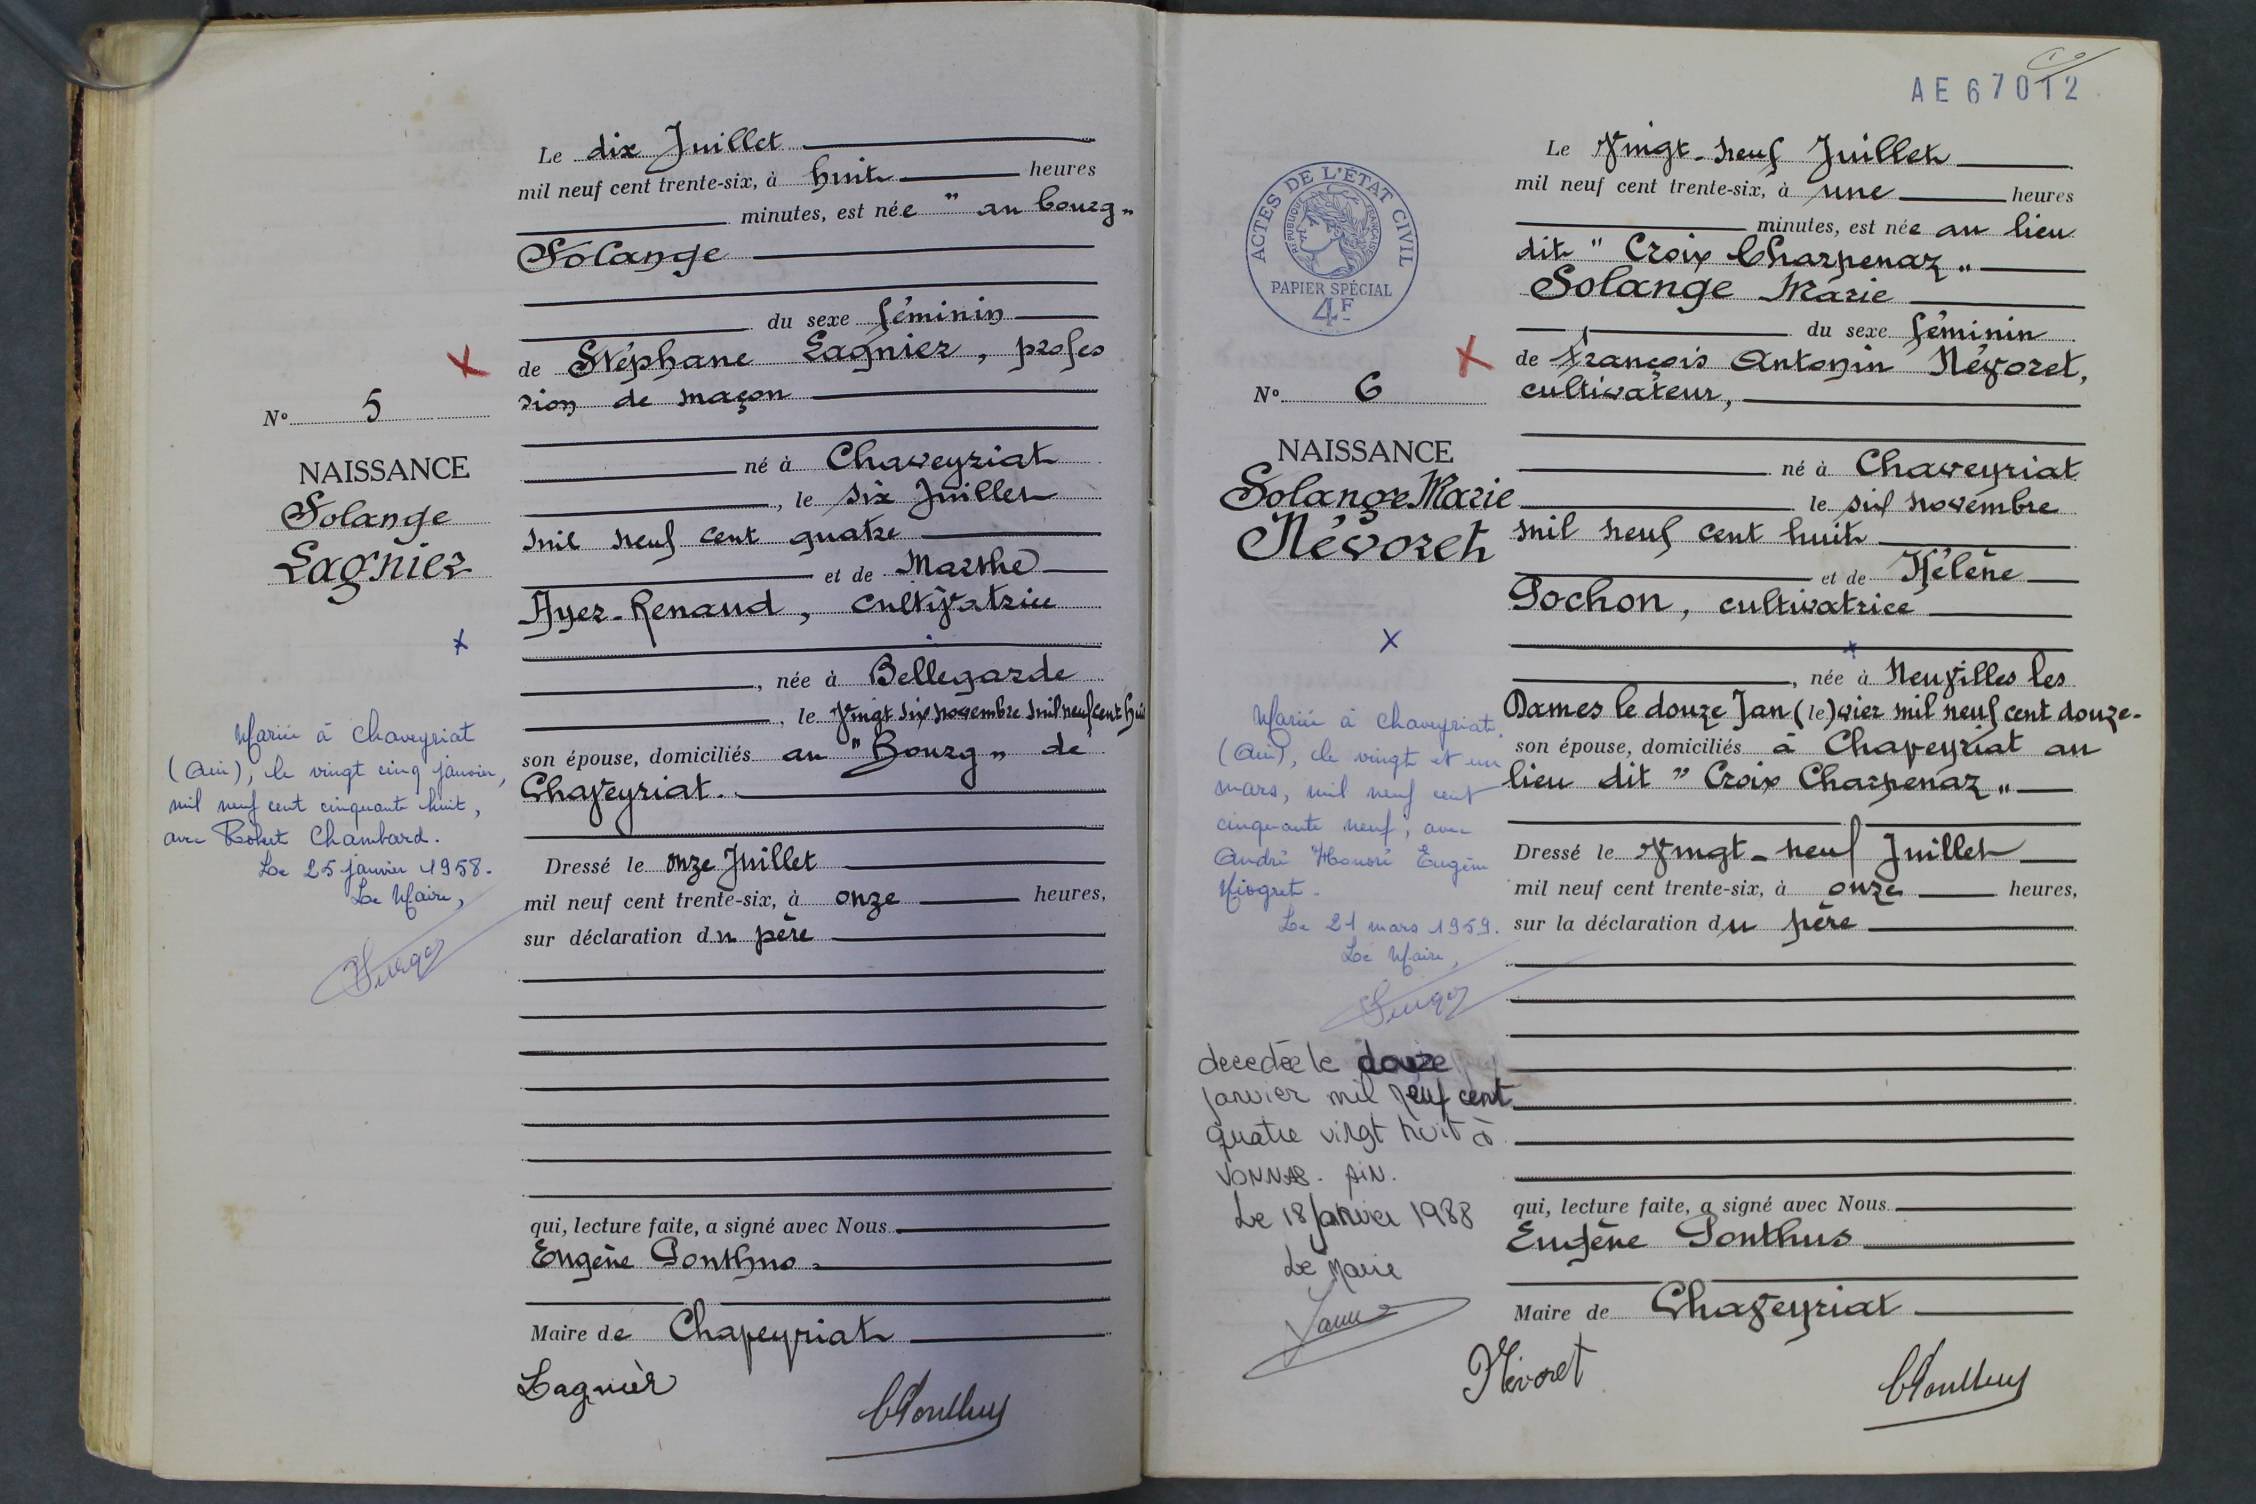 Le dix Juillet
mil neuf cent trente-six, à huit heures
minutes, est née " au bourg "
Solange
du sexe féminin
de Stéphane Lagnier, profes
sion de maçon
N° 5
NAISSANCE
Solange
Lagnier
né à Chaveyriat
, le six Juillet
mil neuf cent quatre
et de Marthe
Ayer-Renaud, cultivatrice
, née à Bellegarde
, le vingt six novembre mil neuf cent huit
son épouse, domiciliés au "Bourg" de
Chaveyriat.
Mariée à Chaveyriat
(Ain), le vingt cinq janvier,
mil neuf cent cinquante huit,
avec Robert Chambard.
Le 25 janvier 1958.
Le Maire,
Dressé le onze Juillet
mil neuf cent trente-six, à onze heures,
sur déclaration du père
qui, lecture faite, a signé avec Nous
Eugène Ponthus
Maire de Chaveyriat
Lagnier
AE 67012
ACTES DE L'ÉTAT CIVIL
RÉPUBLIQUE FRANÇAISE
PAPIER SPÉCIAL
4F
Le Vingt-neuf Juillet
mil neuf cent trente-six, à une heures
minutes, est née au lieu
dit " Croix Charpenaz "
Solange Marie
du sexe féminin
de François Antonin Névoret,
cultivateur,
N° 6
NAISSANCE
Solange Marie
Névoret
né à Chaveyriat
le six novembre
mil neuf cent huit
et de Hélène
Pochon, cultivatrice
, née à Neuvilles les
Dames le douze Jan(le)vier mil neuf cent douze.
son épouse, domiciliés à Chaveyriat au
lieu dit " Croix Charpenaz "
Mariée à Chaveyriat,
(Ain), le vingt et un
mars, mil neuf cent
cinquante neuf, avec
André Honoré Eugène
Miogret.
Le 21 mars 1959.
Le Maire,
decedée le douze
janvier mil neuf cent
quatre virgt huit à
VONNAS. AIN.
Le 18 Janvier 1988
Le Maire
Dressé le Vingt-neuf Juillet
mil neuf cent trente-six, à onze heures,
sur la déclaration du père
qui, lecture faite, a signé avec Nous
Eugène Ponthus
Maire de Chaveyriat
Névoret